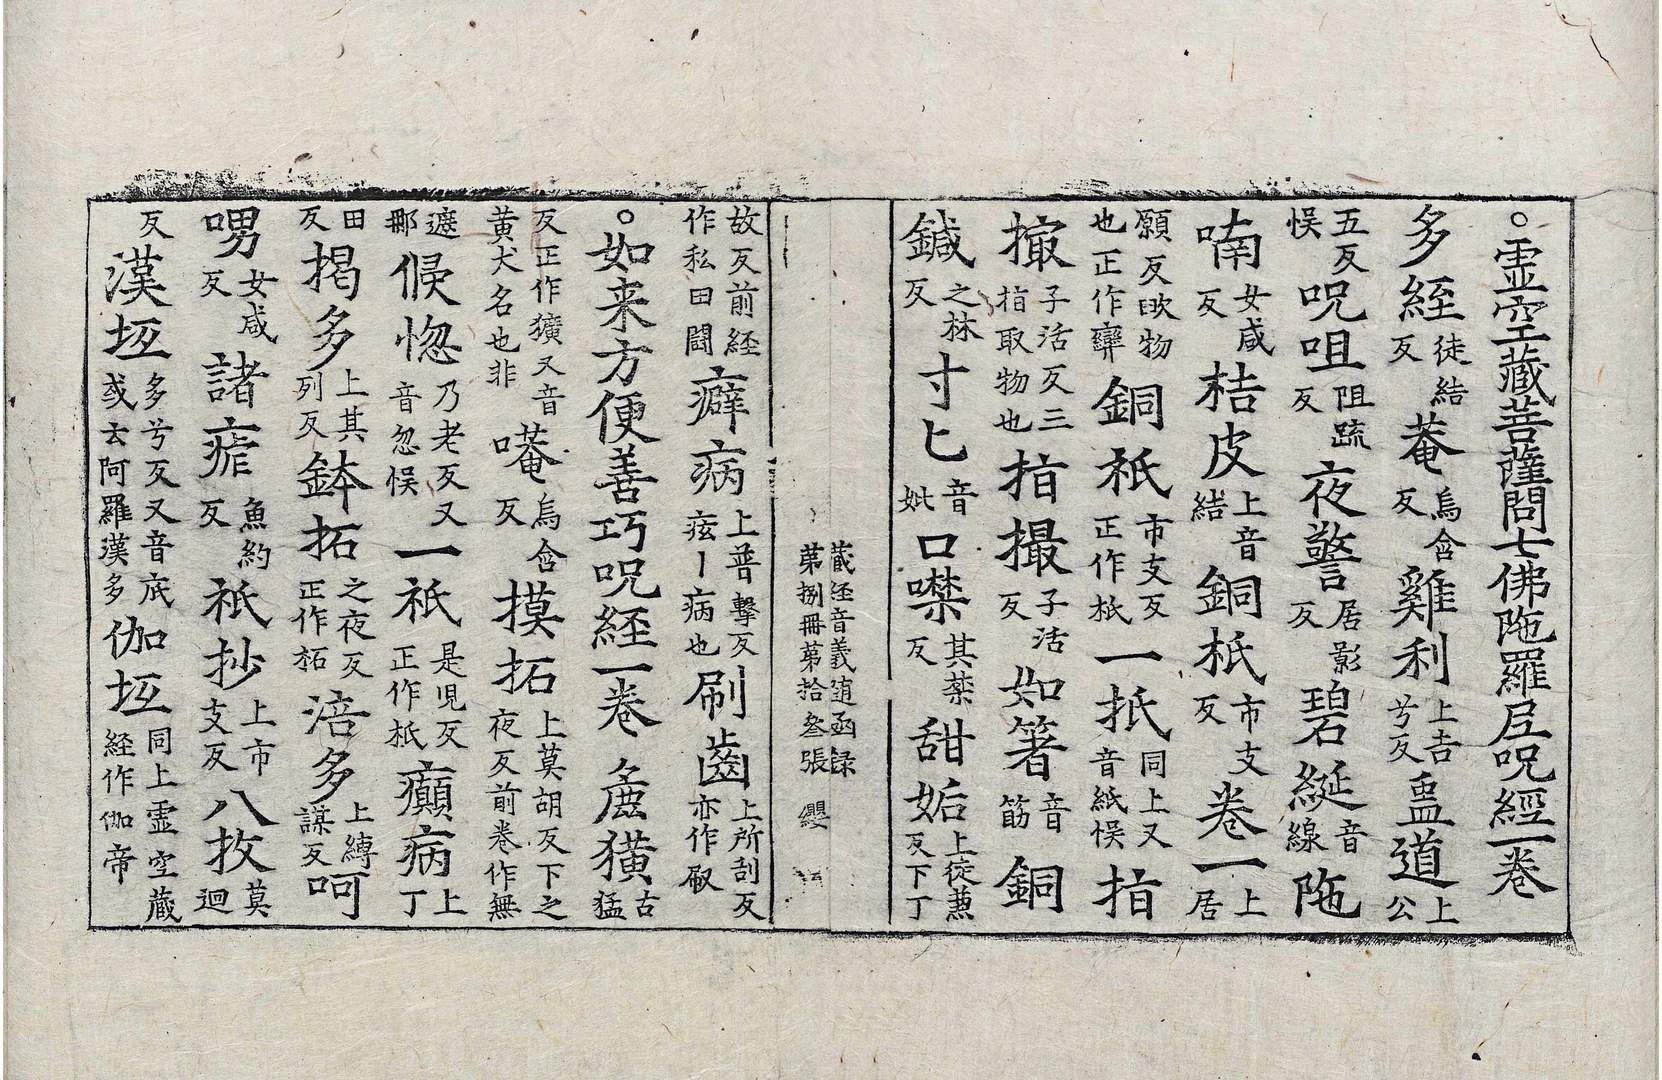 ○霊空藏菩薩問七佛陁羅尼呪經一卷
多絰徒結反菴烏含反雞利上吉兮反蛊道上公
五反悮呪咀阻䟽反夜警居影反碧綖音線陁
喃女咸反桔皮上音結銅柢市支反卷一上居
願反㰹物也正作㢡銅祇市支反正作柢一扺同上又音紙悮指
撮子活反三指取物也指撮子活反如箸音筋銅
鍼之林反寸匕音妣口噤其禁反甜姤上徒蒹反下丁
藏経音義随函録苐捌冊苐拾叄張 纓
故反前経作私田闘癖病上普擊反痃丨病也刷齒上所刮反亦作㕞
○如来方便善巧呪経一卷 麁獚古猛
反正作獷又音黄犬名也非唵烏含反摸拓上莫胡反下之夜反前卷作無
遮𨚗㑋惚乃老反又音忽悮一祇是児反正作柢癲病上丁
田反揭多上其列反鉢拓之夜反正作柘涪多上縛謀反呵
㖠女咸反諸瘧魚約反祇抄上市支反八抆莫迴
反漢坘多兮反又音底或云阿羅漢多伽坘同上霊空藏経作伽帝